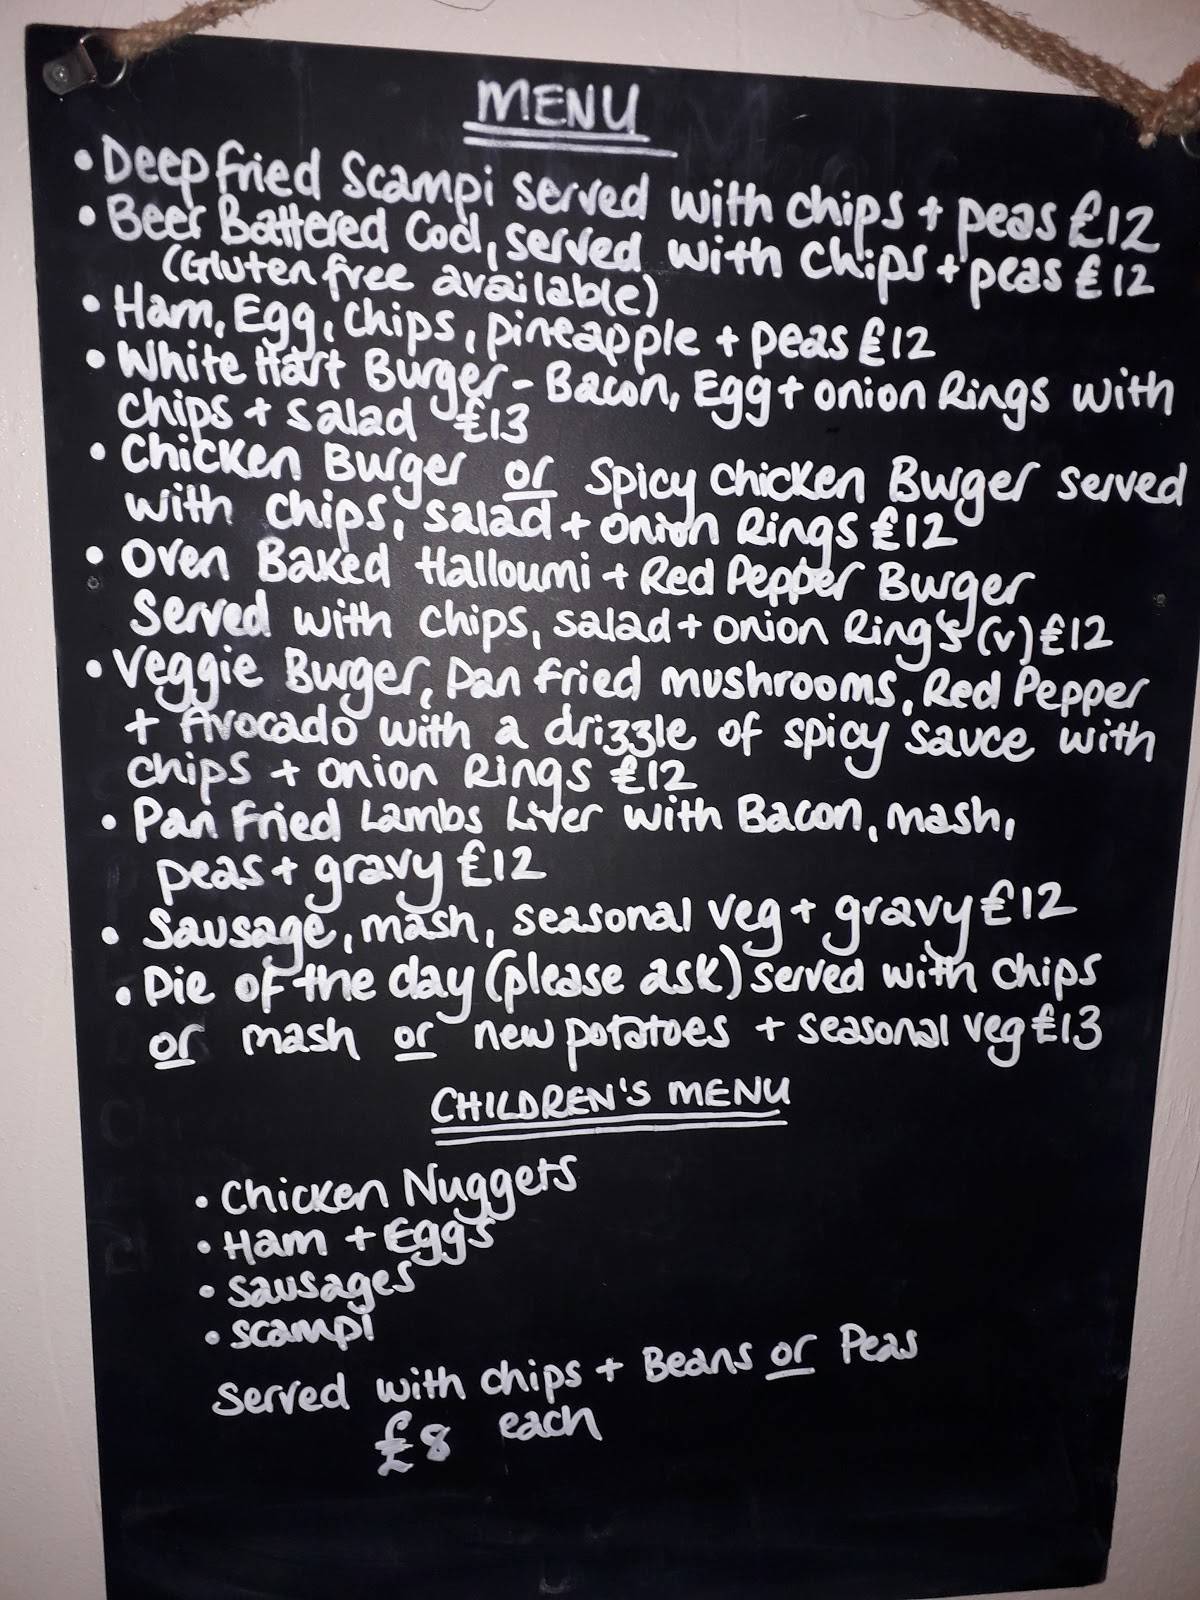 MENU
• Deep fried Scampi served with chips + peas £12
• Beer Battered Cod, served with chips + peas £12
(Gluten free available)
• Ham, Egg, chips, pineapple + peas £12
• White Hart Burger - Bacon, Egg + onion Rings with
chips + salad £13
• Chicken Burger or Spicy Chicken Burger served
with chips, salad + onion Rings £12
• Oven Baked Halloumi + Red Pepper Burger
Served with chips, salad + onion Ring's (v) £12
• Veggie Burger, Pan fried mushrooms, Red Pepper
+ Avocado with a drizzle of spicy sauce with
chips + onion Rings £12
• Pan Fried Lambs Liver with Bacon, mash,
peas + gravy £12
• Sausage, mash, seasonal veg + gravy £12
• Pie of the day (please ask) served with chips
or mash or new potatoes + seasonal veg £13
CHILDREN'S MENU
• Chicken Nuggets
• Ham + Eggs
• Sausages
• Scampi
Served with chips + Beans or Peas
£8 each